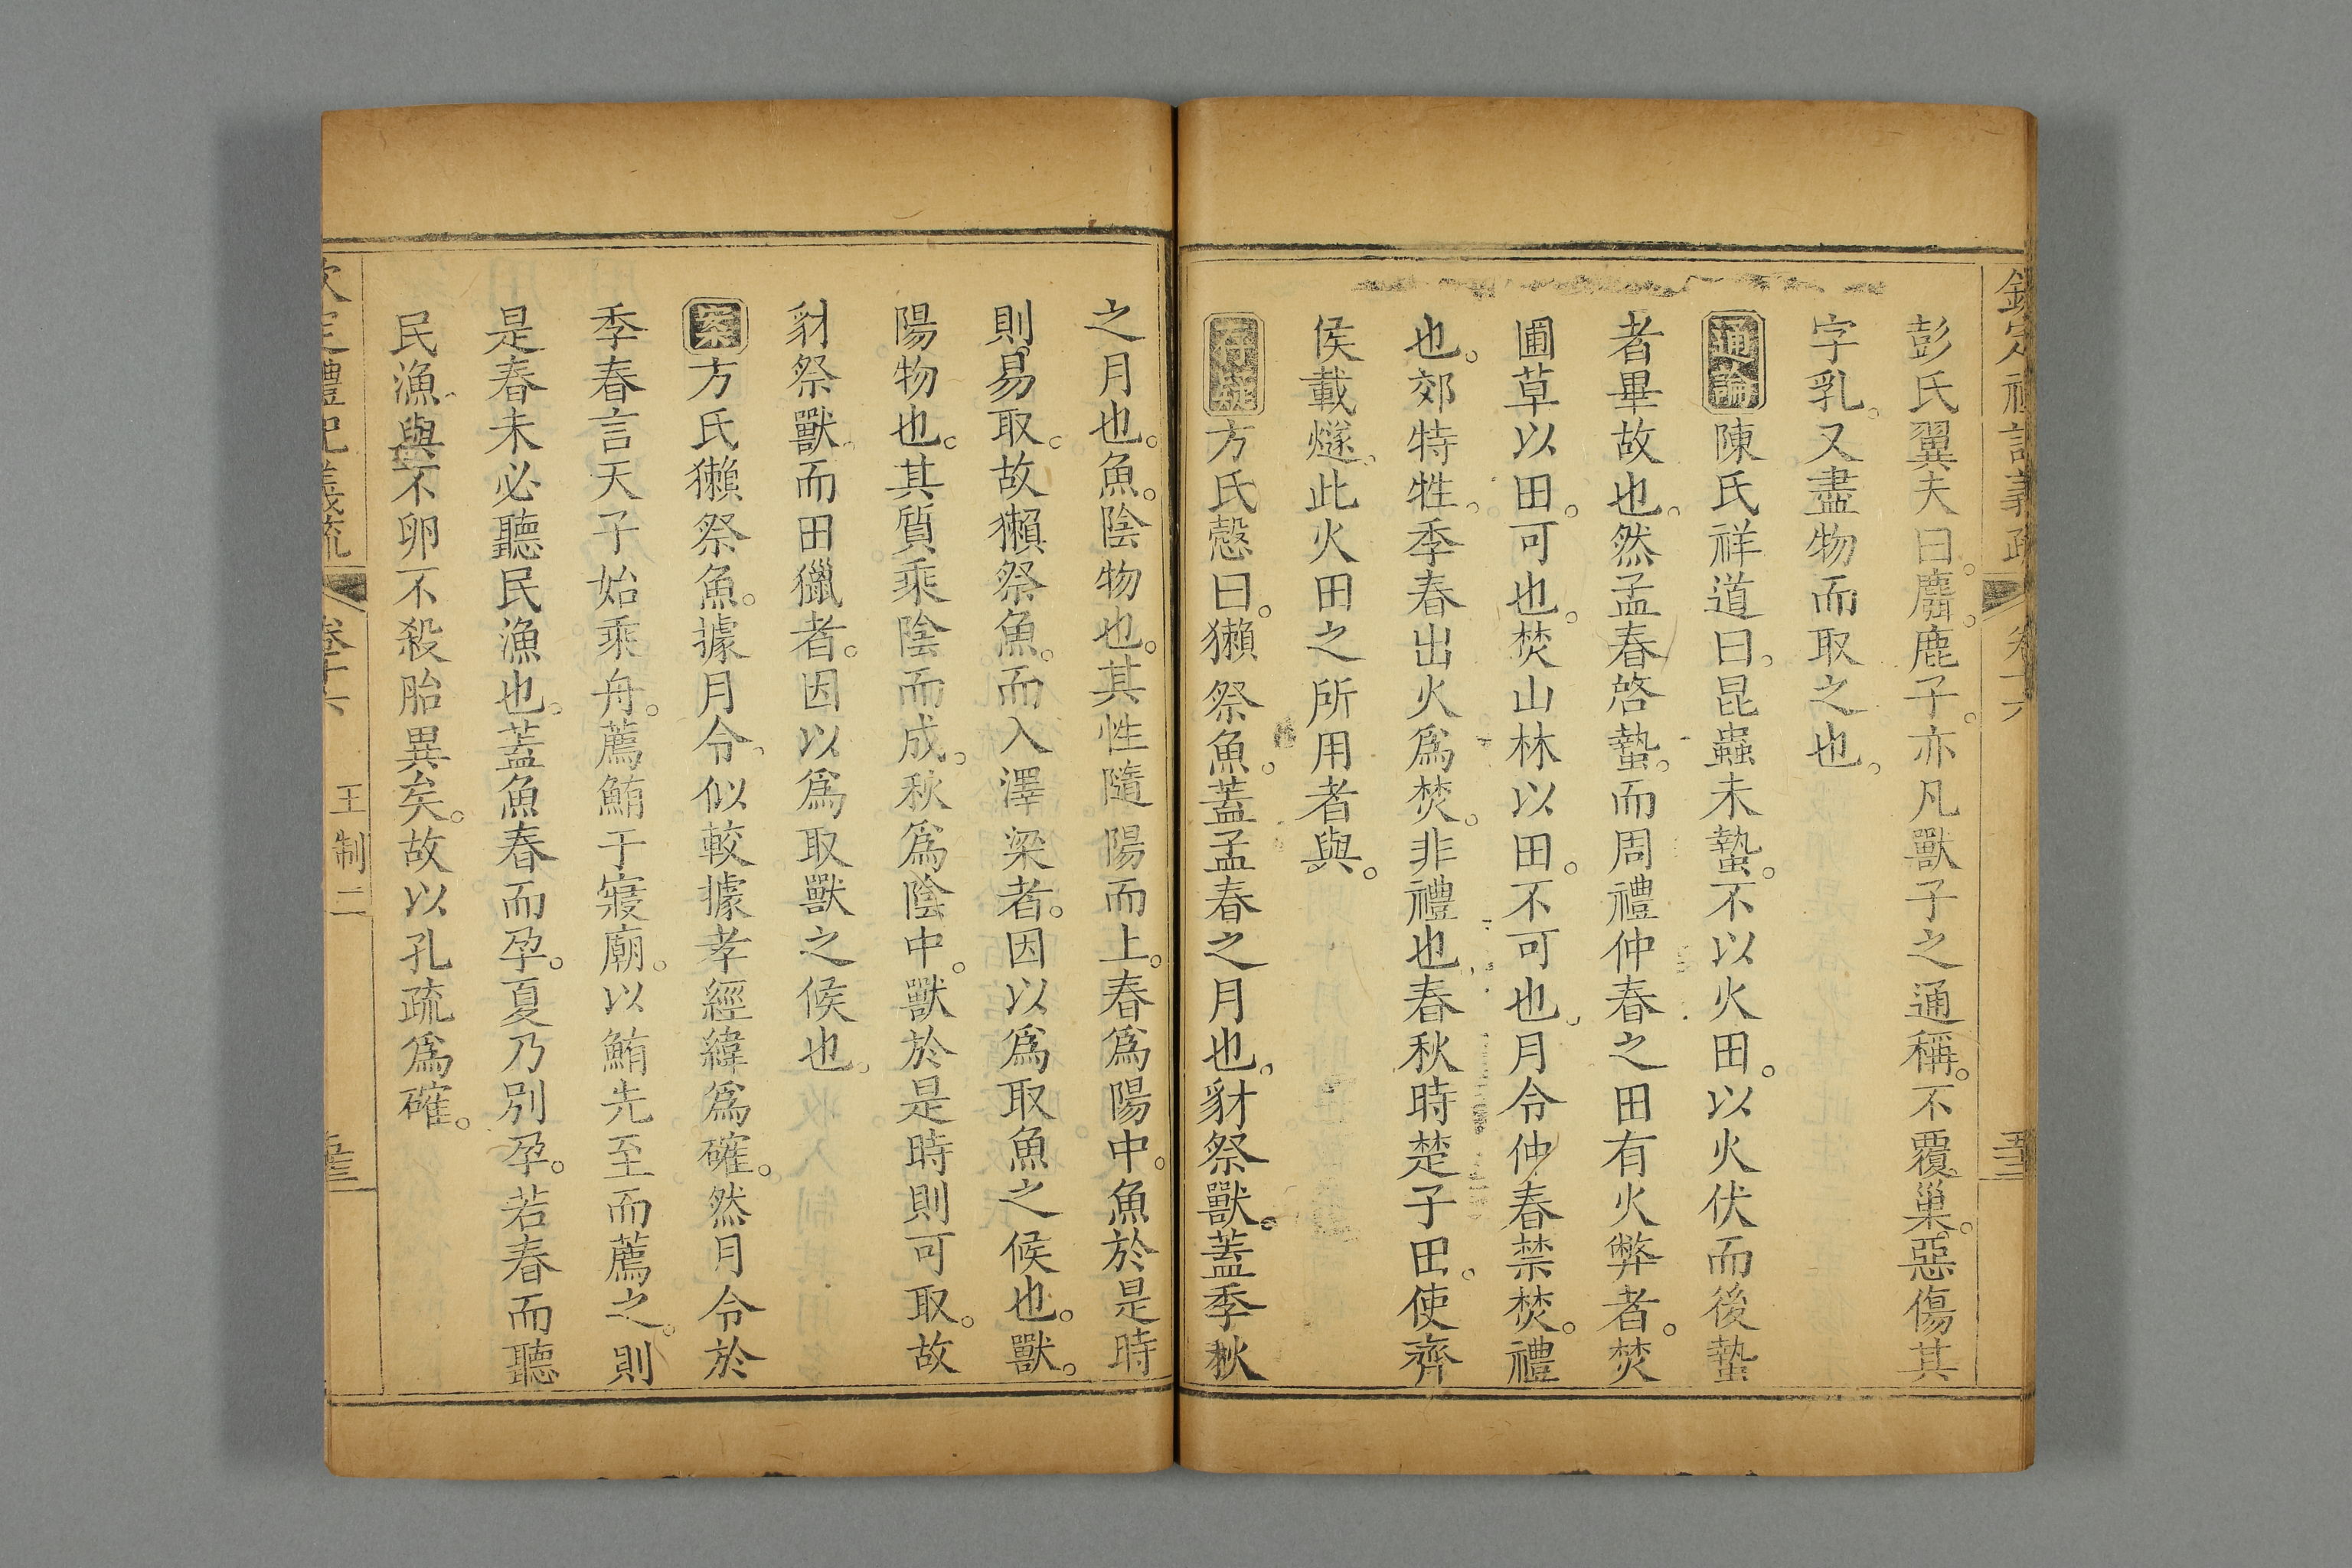 欽定禮記義疏 卷十六 五三
彭氏翼夫曰。麛。鹿子。亦凡獸子之通稱。不覆巢。惡傷其
字乳。又盡物而取之也。
通論陳氏祥道曰。昆蟲未蟄。不以火田。以火伏而後蟄
者畢故也。然孟春啓蟄。而周禮仲春之田有火弊者。焚
圃草以田。可也。焚山林以田。不可也。月令仲春禁焚。禮
也。郊特牲。季春出火爲焚。非禮也。春秋時楚子田。使齊
侯載燧。此火田之所用者與。
存疑方氏慤曰。獺祭魚。蓋孟春之月也。豺祭獸。蓋季秋
之月也。魚。陰物也。其性隨陽而上。春爲陽中。魚於是時
則易取。故獺祭魚。而入澤梁者。因以爲取魚之候也。獸。
陽物也。其質乘陰而成。秋爲陰中。獸於是時則可取。故
豺祭獸。而田獵者。因以爲取獸之候也。
案方氏獺祭魚。據月令。似較據孝經緯爲確。然月令於
季春言天子始乘舟。薦鮪于寢廟。以鮪先至而薦之。則
是春未必聽民漁也。蓋魚春而孕。夏乃別孕。若春而聽
民漁。與不卵不殺胎異矣。故以孔疏爲確。
欽定禮記義疏 卷十六 王制二 五三